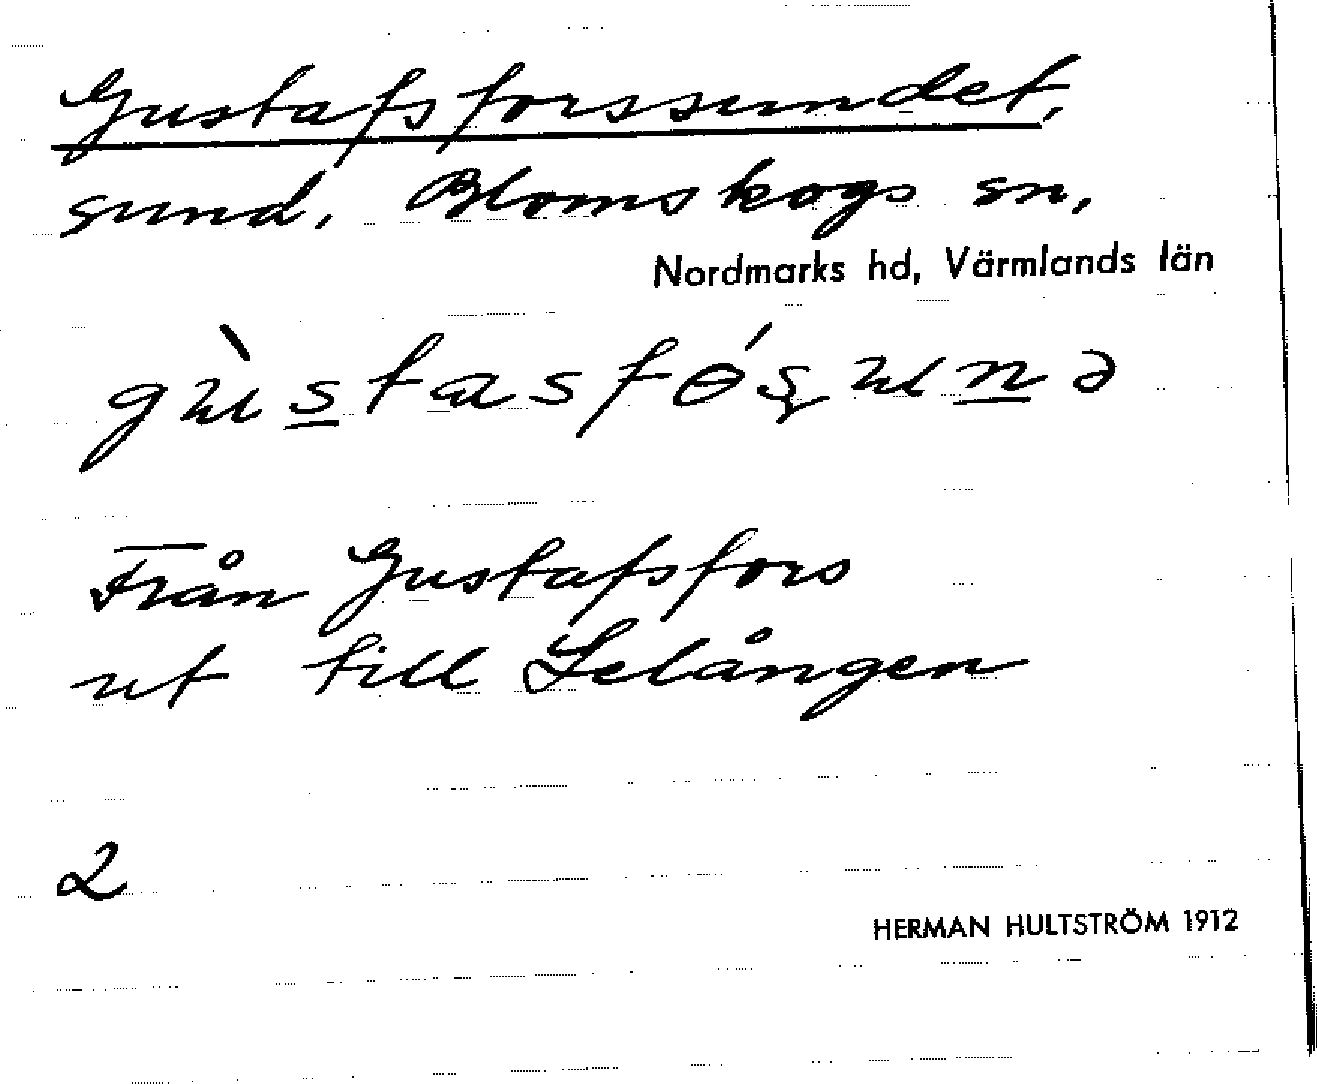 Gustafsforssundet,
sund, Blomskogs sn,
Nordmarks hd, Värmlands län
gùstasfɵ́ʂunə
Från Gustafsfors
ut till Lelången
2
HERMAN HULTSTRÖM 1912